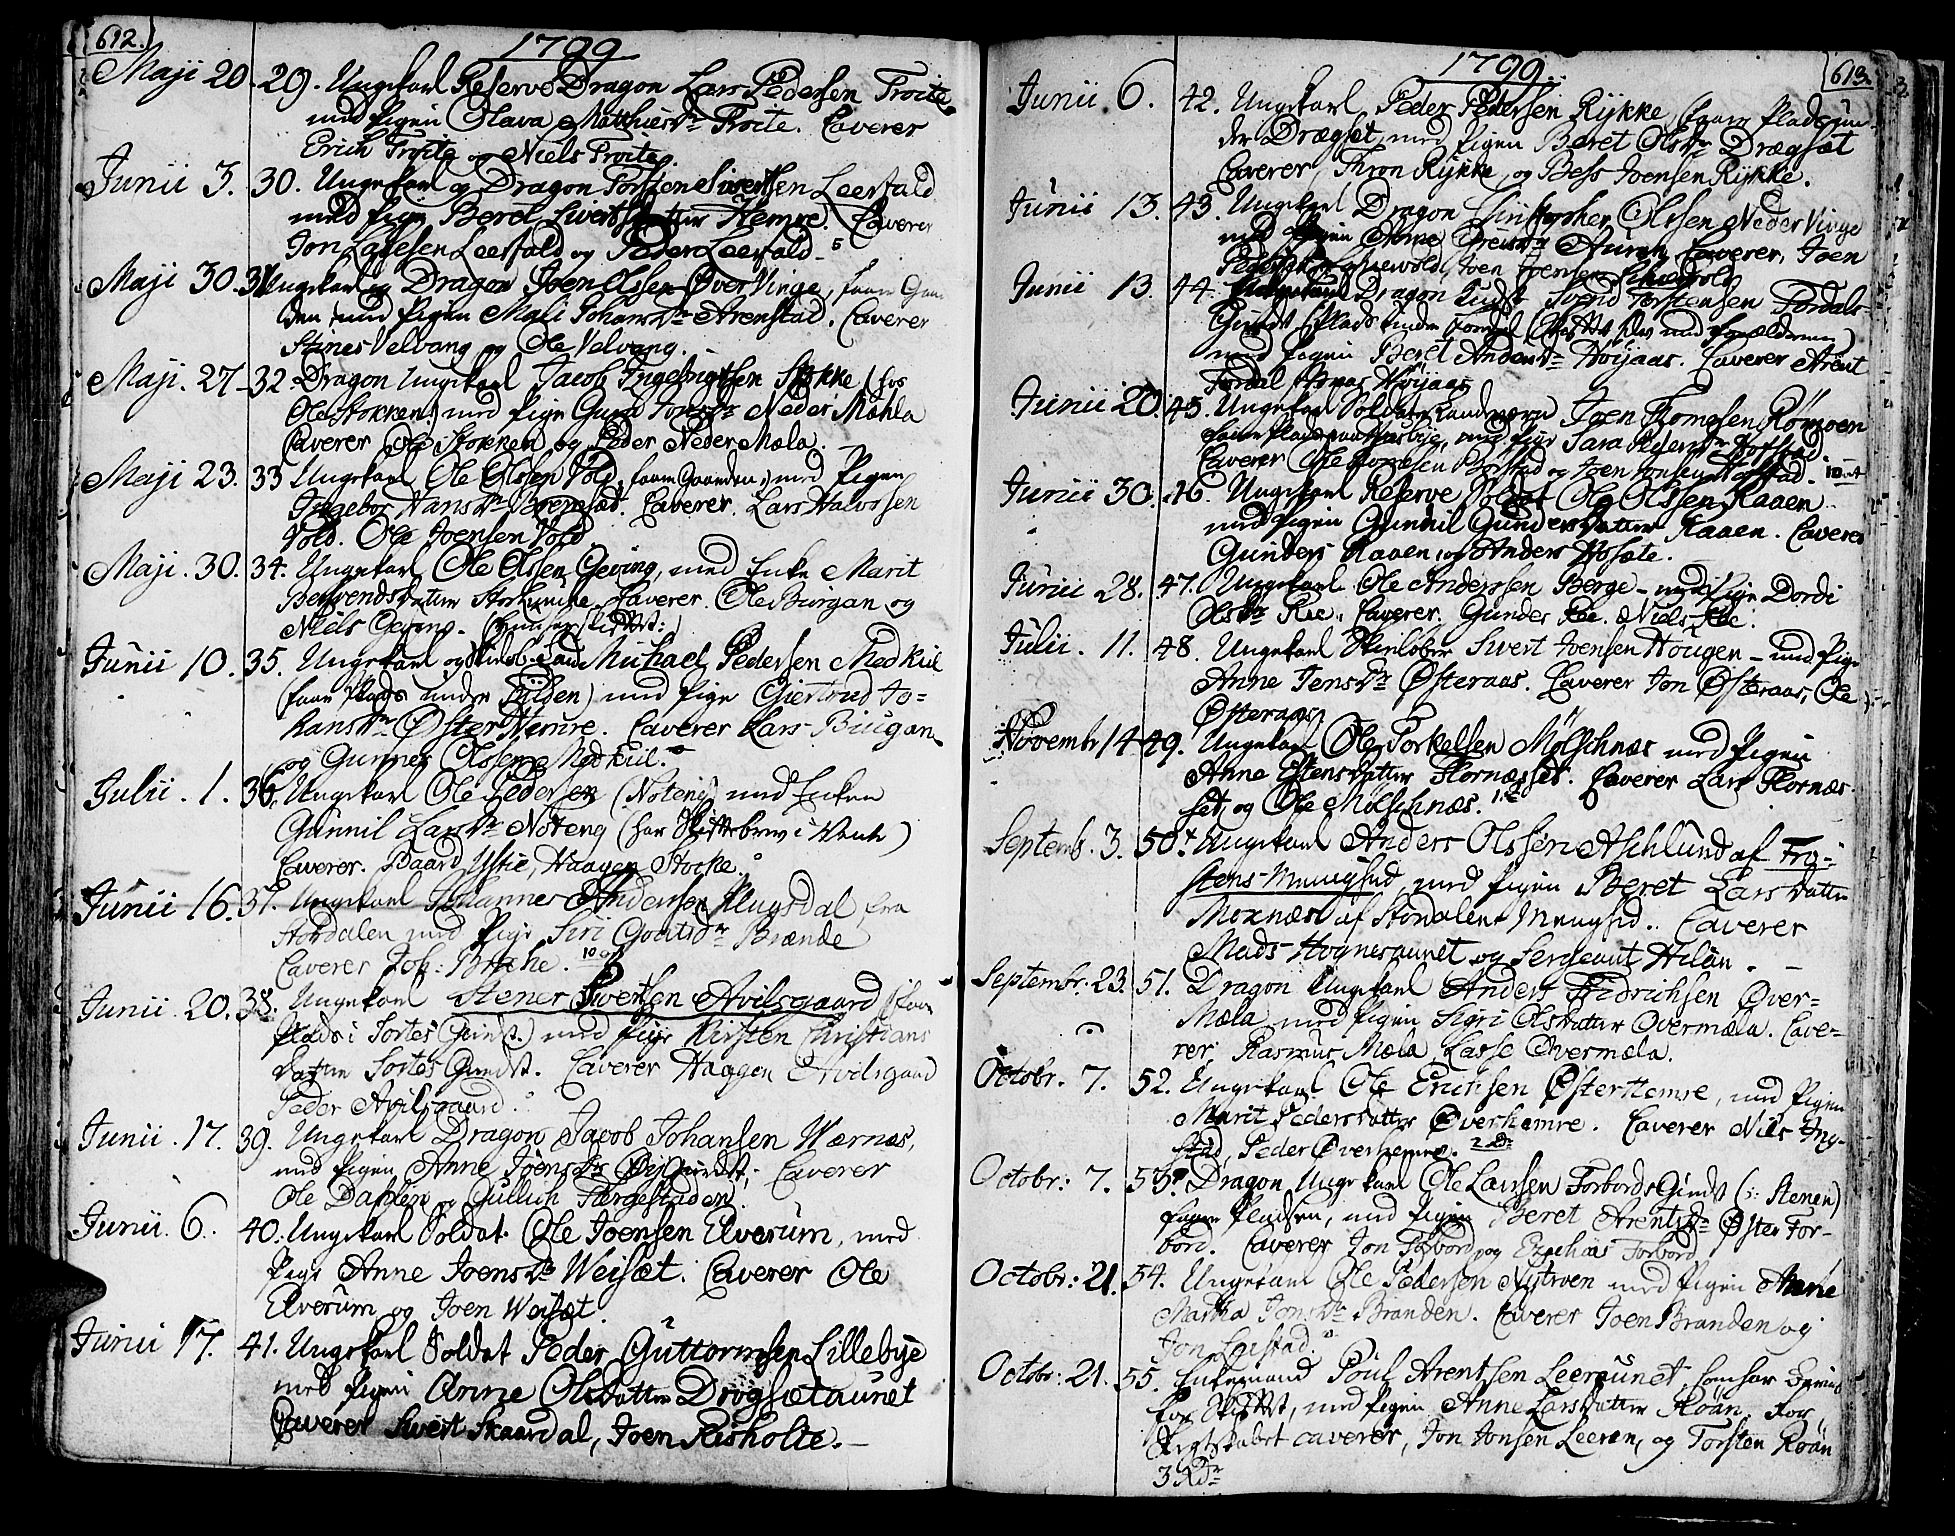 612.
1799
Maji 20. 29. Ungekarl Reserve Dragon Lars Pedersen Troite
med Pigen Olava Matthiesdr Troite. Caverer
Erich Troite og Niels Troite.
Junii 3. 30. Ungekarl og Dragon Torsten Sivertsen Leerfald
med Pigen Beret Sivertsdatter Hemre. Caverer
Jon Lassesen Leerfald og Peder Leerfald.
Maji 30. 31. Ungekarl og Dragon Joen Olssen Øver Vinge, faaer Gaar
den med Pigen Mali Johansdr Arenstad. Caverer
Stines Velvang og Ole Velvang.
Maji. 27. 32. Dragon Ungekarl Jacob Ingebrigtsen Stokke (hos
Ole Stokken) med Pige Guru Jonsdr Neder Mæhla
Caverer Ole Stokken og Peder Neder Mæla.
Maji 23. 33 Ungekarl Ole Olssen Vold, faaer Gaarden, med Pigen
Ingebor Hansdr Caverer. Lars Halvorsen
Vold. Ole Joensen Vold
Maji. 30. 34. Ungekarl Ole Olssen Geving, med Enke Marit
Caverer. Ole Biugan og
Niels Geving.
Junii 10. 35. Ungekarl og Michael Pedersen Medkiil
(faaer Plads under ) med Pige Giertrud Jo-
hansdr Øster Hemre. Caverer Lars Biugan
og Gunner Olssen Medkiil.
Julii. 1. 36. Ungekarl Ole Pedersen (Noteng) med Enken
Gunnil Larsdr Noteng (har Skiftebrev i Vente)
Caverer. Baard Ustie, Haagen Stocke.
Junii 16. 37. Ungekarl Johannes Andersen Flugsdal fra
Stordalen med Pige Siri Brænde
Caverer Joh:
Junii. 20. 38. Ungekarl Stener Sivertsen Avilsgaard (faaer
Plads i Sortes Grindt.) med Pige Kirsten Christians
datter Sortes Grindt. Caverer Haagen Avilsgaard
Peder Avilsgaard.
Junii. 17. 39. Ungekarl Dragon Jacob Johansen Wærnæs,
med Pigen Anne Joensdr Caverer
Ole Dahlen og Gullich Hergestaden.
Junii. 6. 40. Ungekarl Soldat Ole Joensen Elverum, med
Pige Anne Joensdr Weisæt. Caverer Ole
Elverum og Joen Weisæt.
Junii 17. 41. Ungekarl Soldat Peder Guttormsen Lillebye
med Pigen Anne Olsdatter Drogsætaunet
Caverer Sivert Skaardal, Joen Risholte.
613.
1799
Junii 6. 42. Ungekarl Peder Pedersen Rykke, faaer Plads un-
der Drægset, med Pigen Beret Olsdr Drægsæt
Caverer, Thron Rykke, og Bess Joensen Rykke.
Junii 13. 43. Ungekarl Dragon Christopher Olssen Neder Vinge
med Pigen Anne Auran. Caverer, Joen
Pedersen Joen Joensen
Junii 13. 44. Ungekarl Dragon Svend Torstensen Fordals
Grindt
med Pigen Beret Andersdr Høijaas. Caverer Arent
Fordal, Høijaas
Junii 20. 45. Ungekarl Soldat Landværn Joen Thomesen Rømoen
med Pige Sara Pedersdr
Caverer Ole
Junii 30. 46. Ungekarl Reserve Soldat Ole Olssen Raaen
med Pigen Gunhil Gundersdatter Raaen. Caverer
Gunder Raaen, og Anders Hosæte.
Junii 28. 47. Ungekarl Ole Anderssen Berge - med Pige Dordi
Olsdr Ree. Caverer. Gunder Ree. Niels Ree.
Julii. 11. 48. Ungekarl Skiløber Sivert Joensen Hougen - med Pige
Anne Jensdr Østeraas. Caverer Jon Østeraas, Ole
Østeraas
Novembr 14 49. Ungekarl Ole Torkelsen Mølschnæs med Pigen
Anne Estensdatter Flornæsset. Caverer Lars Flornæs-
set, og Ole Mølschnæs.
Septemb. 3. 50. Ungekarl Anders Olssen Aschlund af Fro-
stens Menighed, med Pigen Beret Larsdatter
Moxnæs af Stordalens Menighed. Caverer
Mads Hognesaunet og Sergeant Hilan.
Septembr. 23. 51. Dragon Ungekarl Anders Fridrichsen Øver-
Mæla med Pigen Sigri Olsdatter Overmæla. Cave-
rer, Rasmus Mæla, Lasse Overmæla.
Octobr. 7. 52. Ungekarl Ole Erichsen Østerhemre, med Pigen
Marit Pedersdatter Øverhemre. Caverer Nils Ing-
stad, Peder Øverhemre.
Octobr: 7. 53. Dragon, Ungekarl Ole Larssen Forbords Grindt (: Stenen)
faaer Pladsen, med Pigen Beret Arentsdr Øster For-
bord. Caverer Jon Forbord og Forbord
Octobr: 21. 54. Ungekarl Ole Pedersen Nytrøen med Pigen Anne
Martha Jonsdr Branden. Caverer Joen Branden og
Jon
Octobr: 21. 55. Enkemand Poul Arentsen Leeraunet, som har
for Skiftet, med Pigen Anne Larsdatter Roån. For
caverer, Jon Jonsen Leeren, og Torsten Roån
3 Rdr